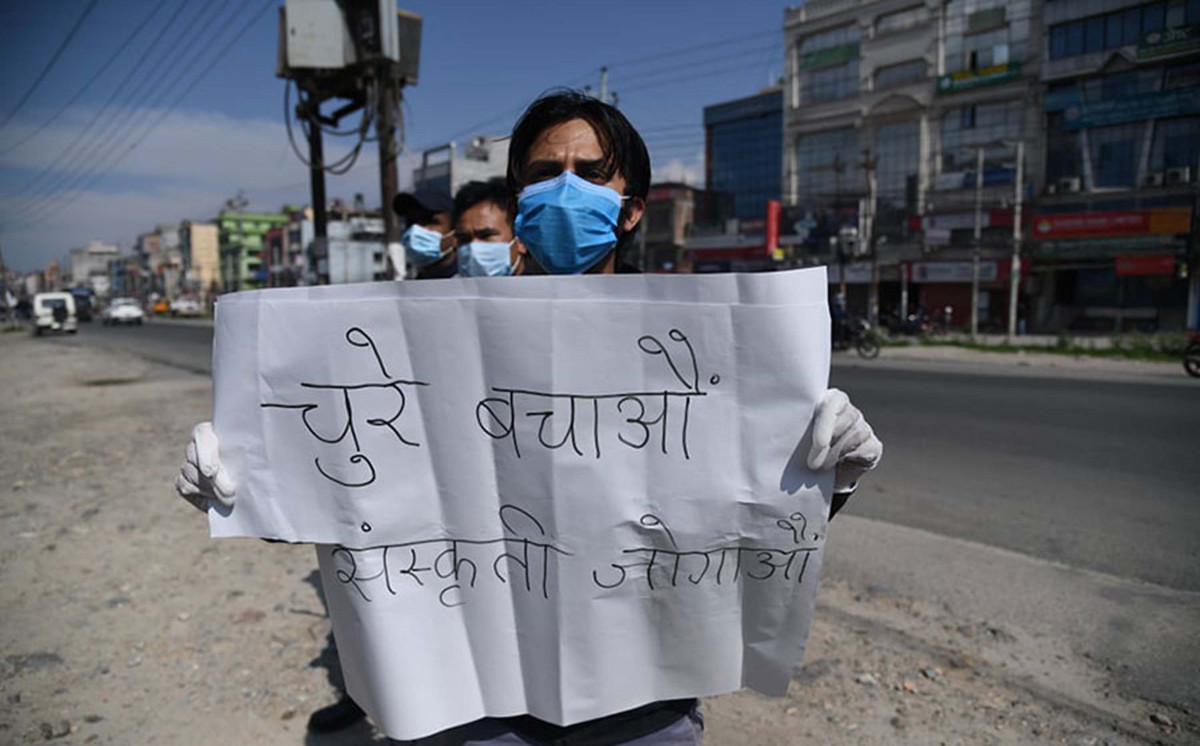 चुरे बचाऔं
संस्कृती जोगाऔं